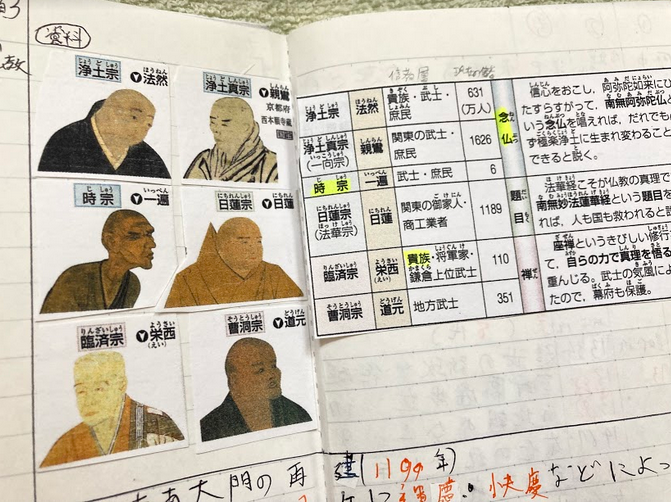 資料
浄土宗 ▼法然
浄土真宗 ▼親鸞
京都府
西本願寺蔵
時宗 ▼一遍
日蓮宗 ▼日蓮
臨済宗 ▼栄西
(えい)
曹洞宗 ▼道元
浄土宗 法然 貴族・武士・庶民 631(万人)
浄土真宗(一向宗) 親鸞 関東の武士・庶民 1626
時宗 一遍 武士・庶民 6
日蓮宗(法華宗) 日蓮 関東の御家人・商工業者 1189
臨済宗 栄西(えい) 貴族・将軍家・鎌倉上位武士 110
曹洞宗 道元 地方武士 351
念仏
信心をおこし、阿弥陀如来にひ
たすらすがって、南無阿弥陀仏
いう念仏を唱えれば、だれでも
ず極楽浄土に生まれ変わること
できると説く。
題目
法華経こそが仏教の真理で
南無妙法蓮華経という題目を
れば、人も国も救われると説
禅
座禅というきびしい修行
て、自らの力で真理を悟る
重んじる。武士の気風によ
たので、幕府も保護。
南大門の再建(1199年)
快慶などによっ